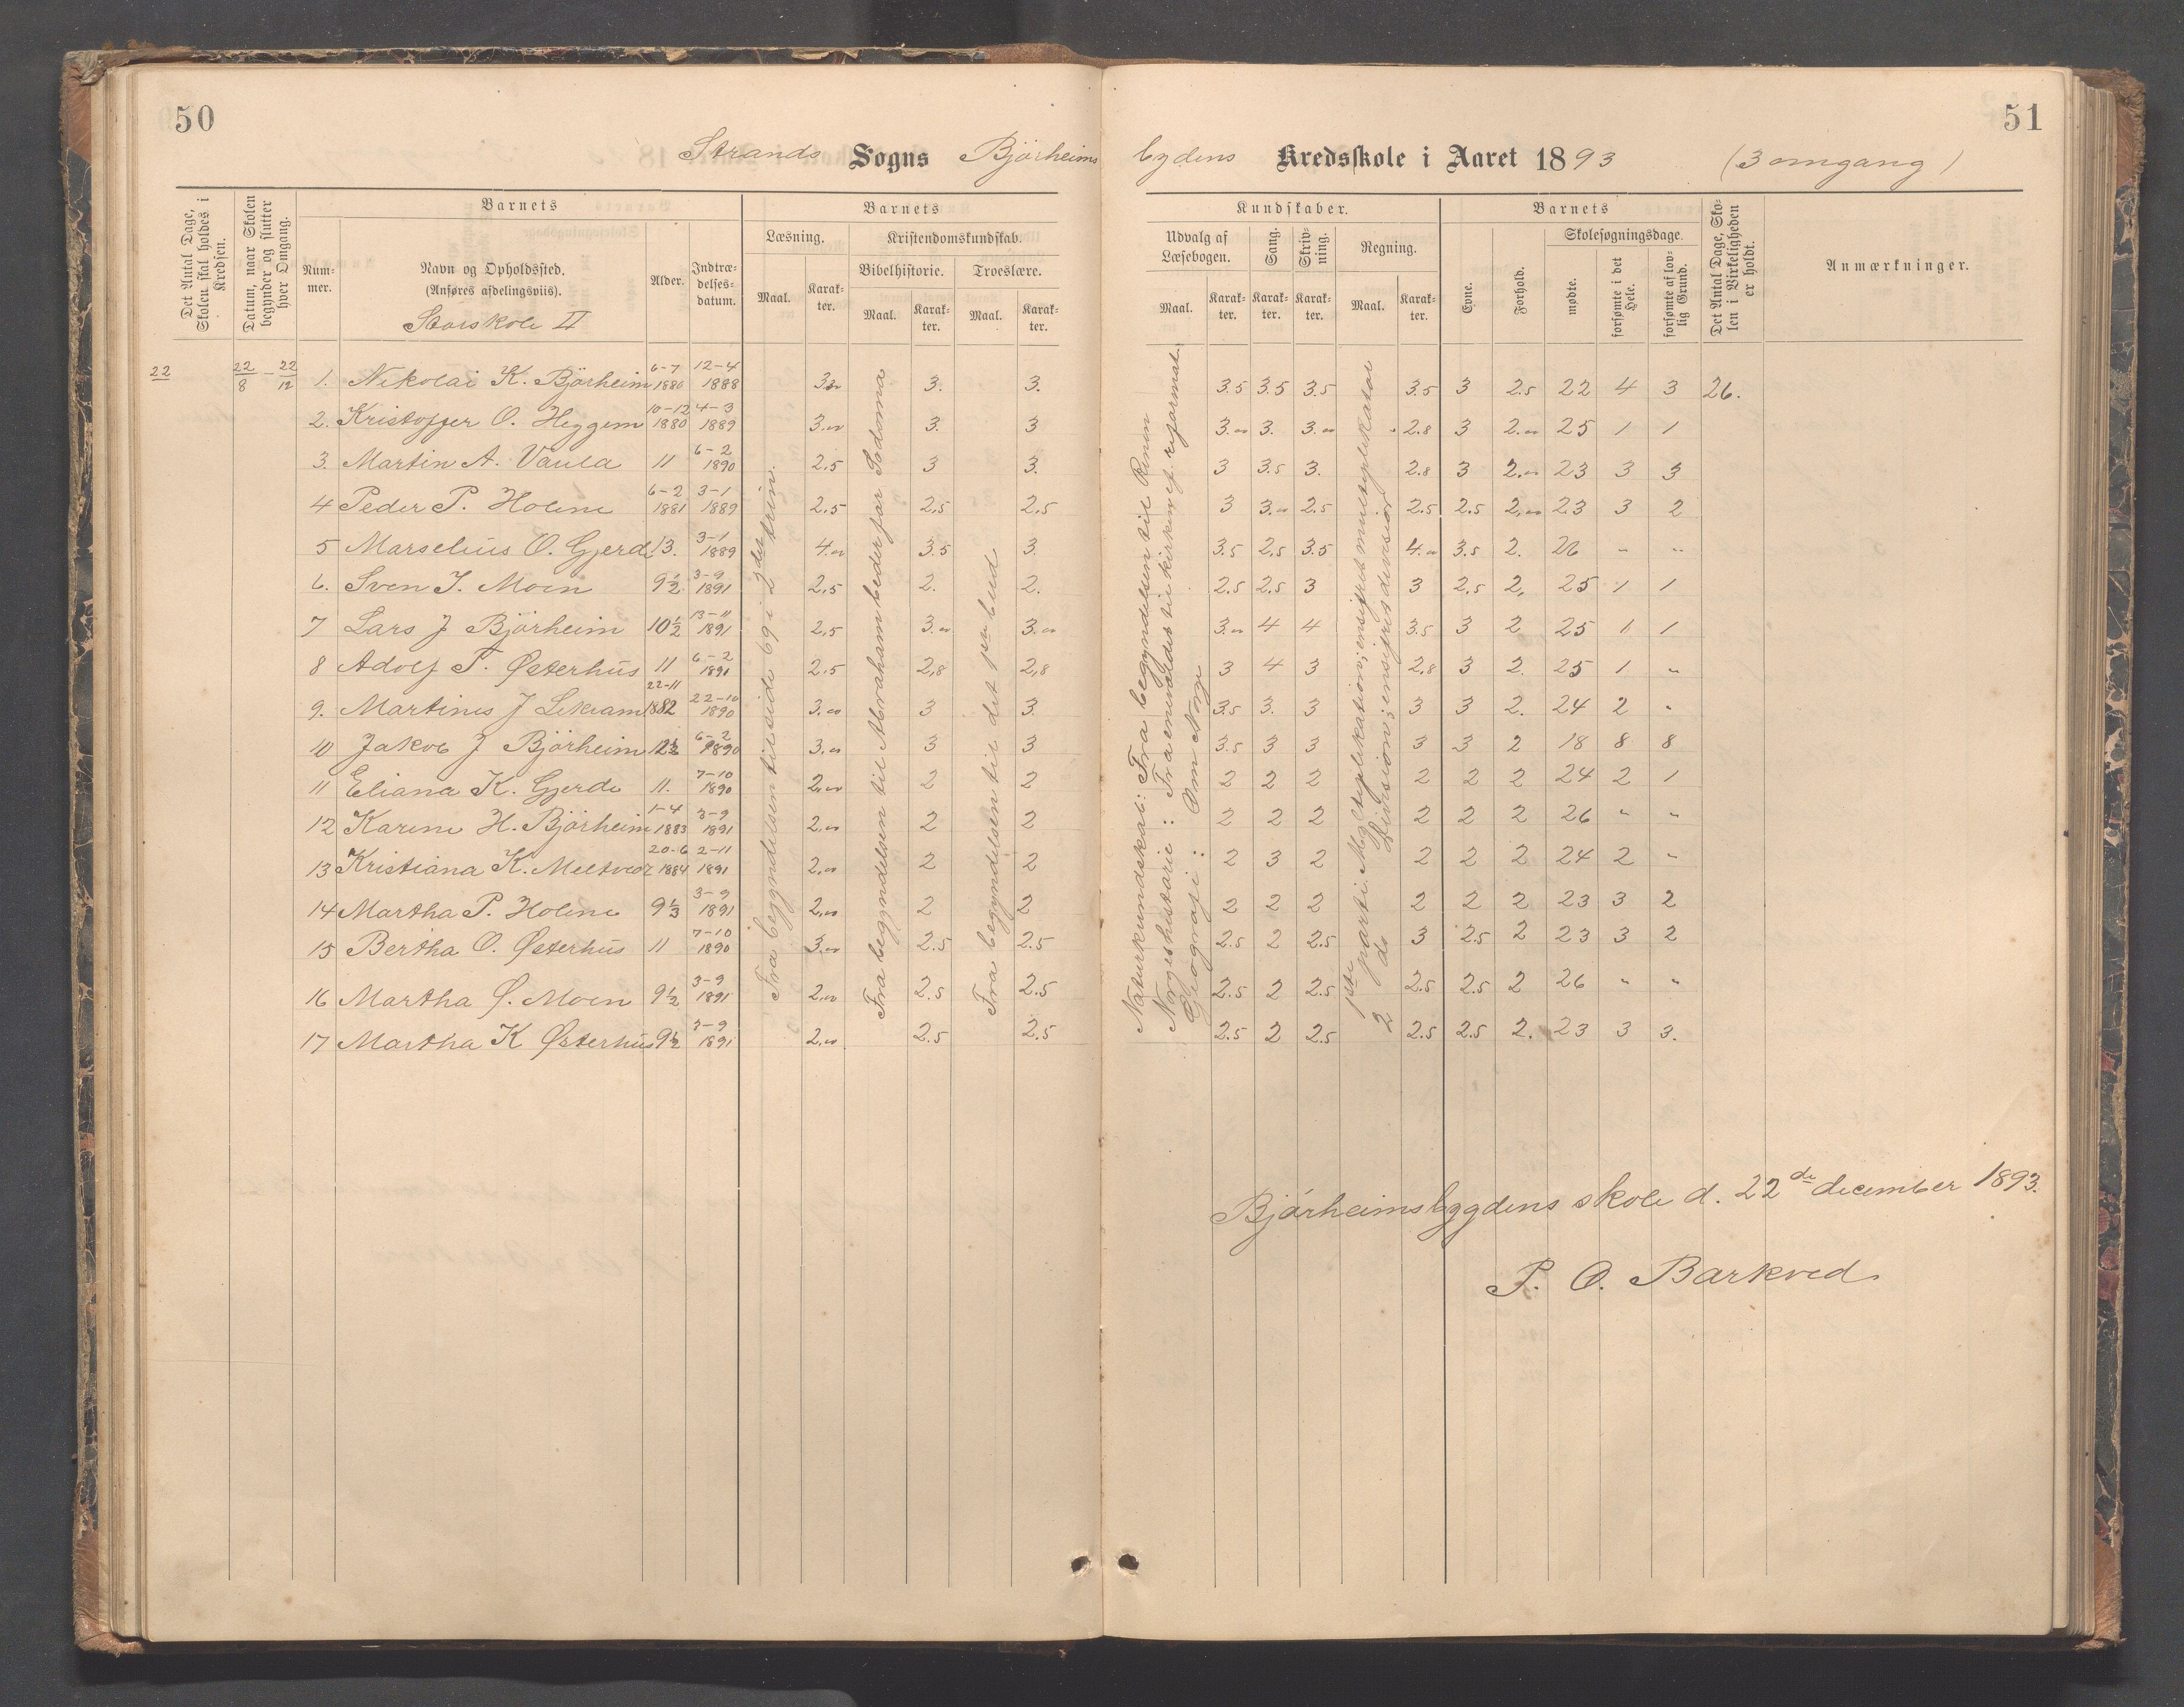 50
51
Strands Sogns Bjørheims bygdens Kredsskole i Aaret 1893 (3 omgang)
Det Antal Dage, Skolen skal holdes i Kredsen.
Datum, naar Skolen begynder og slutter hver Omgang.
Barnets
Num-mer.
Navn og Opholdssted.
(Anføres afdelingsviis).
Storskole II
Alder.
Indtræ-delses-datum.
Barnets
Læsning.
Maal.
Karak-ter.
Kristendomskundskab.
Bibelhistorie.
Maal.
Karak-ter.
Troeslære.
Maal.
Karak-ter.
Kundskaber.
Udvalg af Læsebogen.
Maal.
Karak-ter.
Sang.
Karak-ter.
Skriv-ning.
Karak-ter.
Regning.
Maal.
Karak-ter.
Barnets
Evne.
Forhold.
Skolesøgningsdage.
mødte.
forsømte i det Hele.
forsømte af lov-lig Grund.
Det Antal Dage, Sko-len i Virkeligheden er holdt.
Anmærkninger.
22 22/8 – 22/12 1. Nikolai K. Bjørheim 6-7 1880 12-4 1888 3.00 3. 3. 3.5 3.5 3.5 3.5 3 2.5 22 4 3 26.
2. Kristoffer O. Heggem 10-12 1880 4-3 1889 3.00 3. 3 3.00 3. 3.00 2.8 3 2.00 25 1 1
3. Martin A. Vaula 11 6-2 1890 2.5 3 3. 3 3.5 3. 2.8 3 2.00 23 3 3
4 Peder P. Holene 6-2 1881 3-1 1889 2.5 2.5 2.5 3 3.00 2.5 2.5 2.5 2.00 23 3 2
5 Marselius O. Gjerde 13. 3-1 1889 4.00 3.5 3. 3.5 2.5 3.5 4.00 3.5 2. 26 " "
6. Sven J. Moen 9½ 3-9 1891 2.5 2. 2. 2.5 2.5 3 3 2.5 2. 25 1 1
7 Lars J Bjørheim 10½ 13-11 1891 2.5 3.00 3.00 3.00 4 4 3.5 3 2 25 1 1
8 Adolf T. Østerhus 11 6-2 1891 2.5 2.8 2.8 3 4 3 2.8 3 2. 25 1 "
9. Martines J Lekvam 22-11 1882 22-10 1890 3.00 3 3. 3.5 3. 3 3 3 2. 24 2 "
10 Jakob J Bjørheim 12½ 6-2 1890 3.00 3 3 3.5 3 3 3 3 2 18 8 8
11 Eliana K. Gjerde 11. 7-10 1890 2.00 2 2 2 2 2 2 2 2 24 2 1
12 Karine H. Bjørheim 1-4 1883 3-9 1891 2.00 2 2 2 2 2 2 2 2 26 " "
13 Kristiana K. Meltveit 20-6 1884 2-11 1891 2.00 2 2 2 3 2 2 2 2 24 2 "
14 Martha P. Holene 9⅓ 3-9 1891 2.00 2 2 2 2 2 2 2 2 23 3 2
15 Bertha O. Østerhus 11 7-10 1890 3.00 2.5 2.5 2.5 2 2.5 3 2.5 2 23 3 2
16 Martha Ø. Moen 9½ 3-9 1891 2.00 2.5 2.5 2.5 2 2.5 2.5 2.5 2 26 " "
17 Martha K Østerhus 9½ 3-9 1891 2.00 2.5 2.5 2.5 2 2.5 2.5 2.5 2. 23 3 3.
Fra begyndelsen til side 69 i 2det trin.
Fra begyndelsen til Abraham beder for Sodoma
Fra begyndelsen til det bud
Naturkundskab: Fra begyndelsen til
Norgeshistorie: Fra enevældet til kirken ef. reformat.
Geografi: Om Norge
1ste parti. Multiplikation; ensifret multiplikator
2 do Division; ensifret divisior
Bjørheimsbygdens skole d. 22de december 1893.
P. O. Barkved